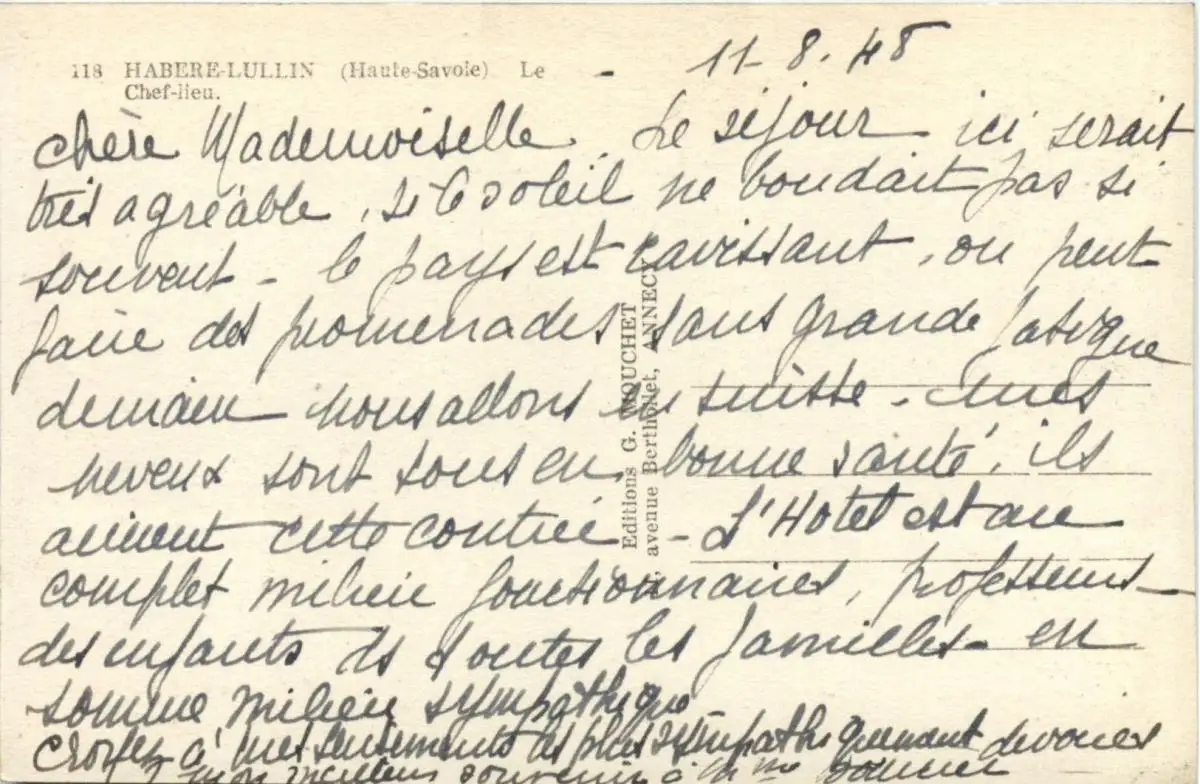 118 HABERE-LULLIN (Haute-Savoie) Le
Chef-lieu.
11-8.48
chère Mademoiselle. Le séjour ici serait
très agréable, si le soleil ne boudait pas si
souvent - le pays est ravissant, on peut
faire des promenades sans grande fatigue
demain nous allons en suisse - mes
neveux sont tous en bonne santé, ils
aiment cette contrée - L'Hotel est au
complet milieu fonctionnaires, professeurs -
des enfants ds toutes les familles - en
somme milieu sympathique -
Croyez à mes sentiments les plus sympathiquement dévoués
mon meilleur souvenir à Mme
Editions G. MOUCHET
avenue Berthollet, ANNECY